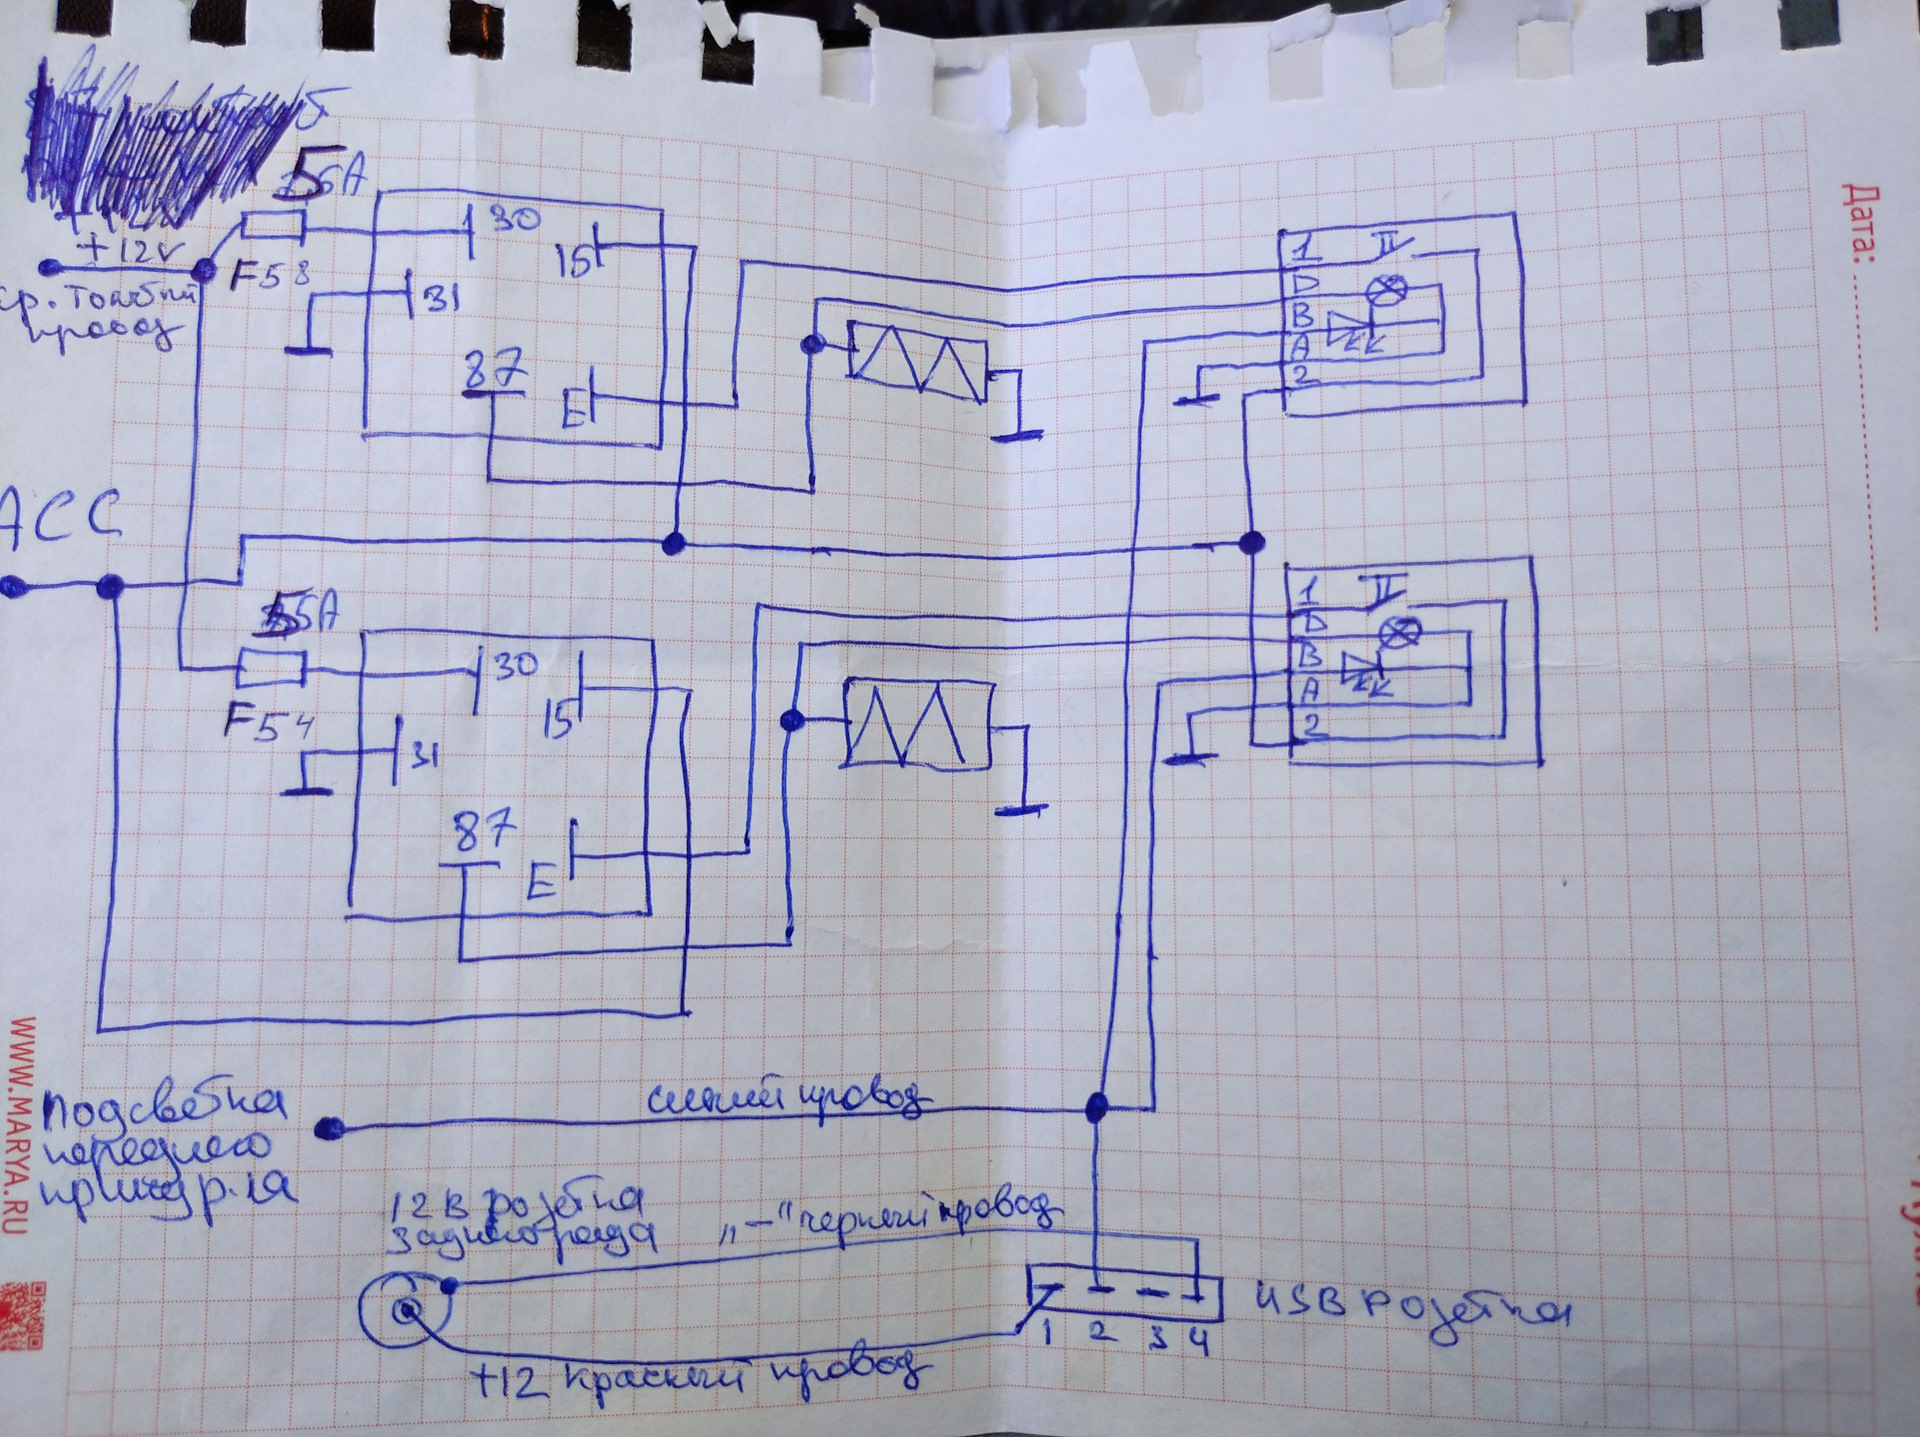 5A
+12v
F53
ср. толстый
провод
30
15
31
87
E
1
D
B
A
2
ACC
5A
F54
30
15
31
87
E
1
D
B
A
2
Подсветка
переднего
синий провод
12В розетка
заднего ряда
„—“ черный провод
+12 красный провод
1 2 3 4
USB розетка
Дата:
WWW.MARYA.RU